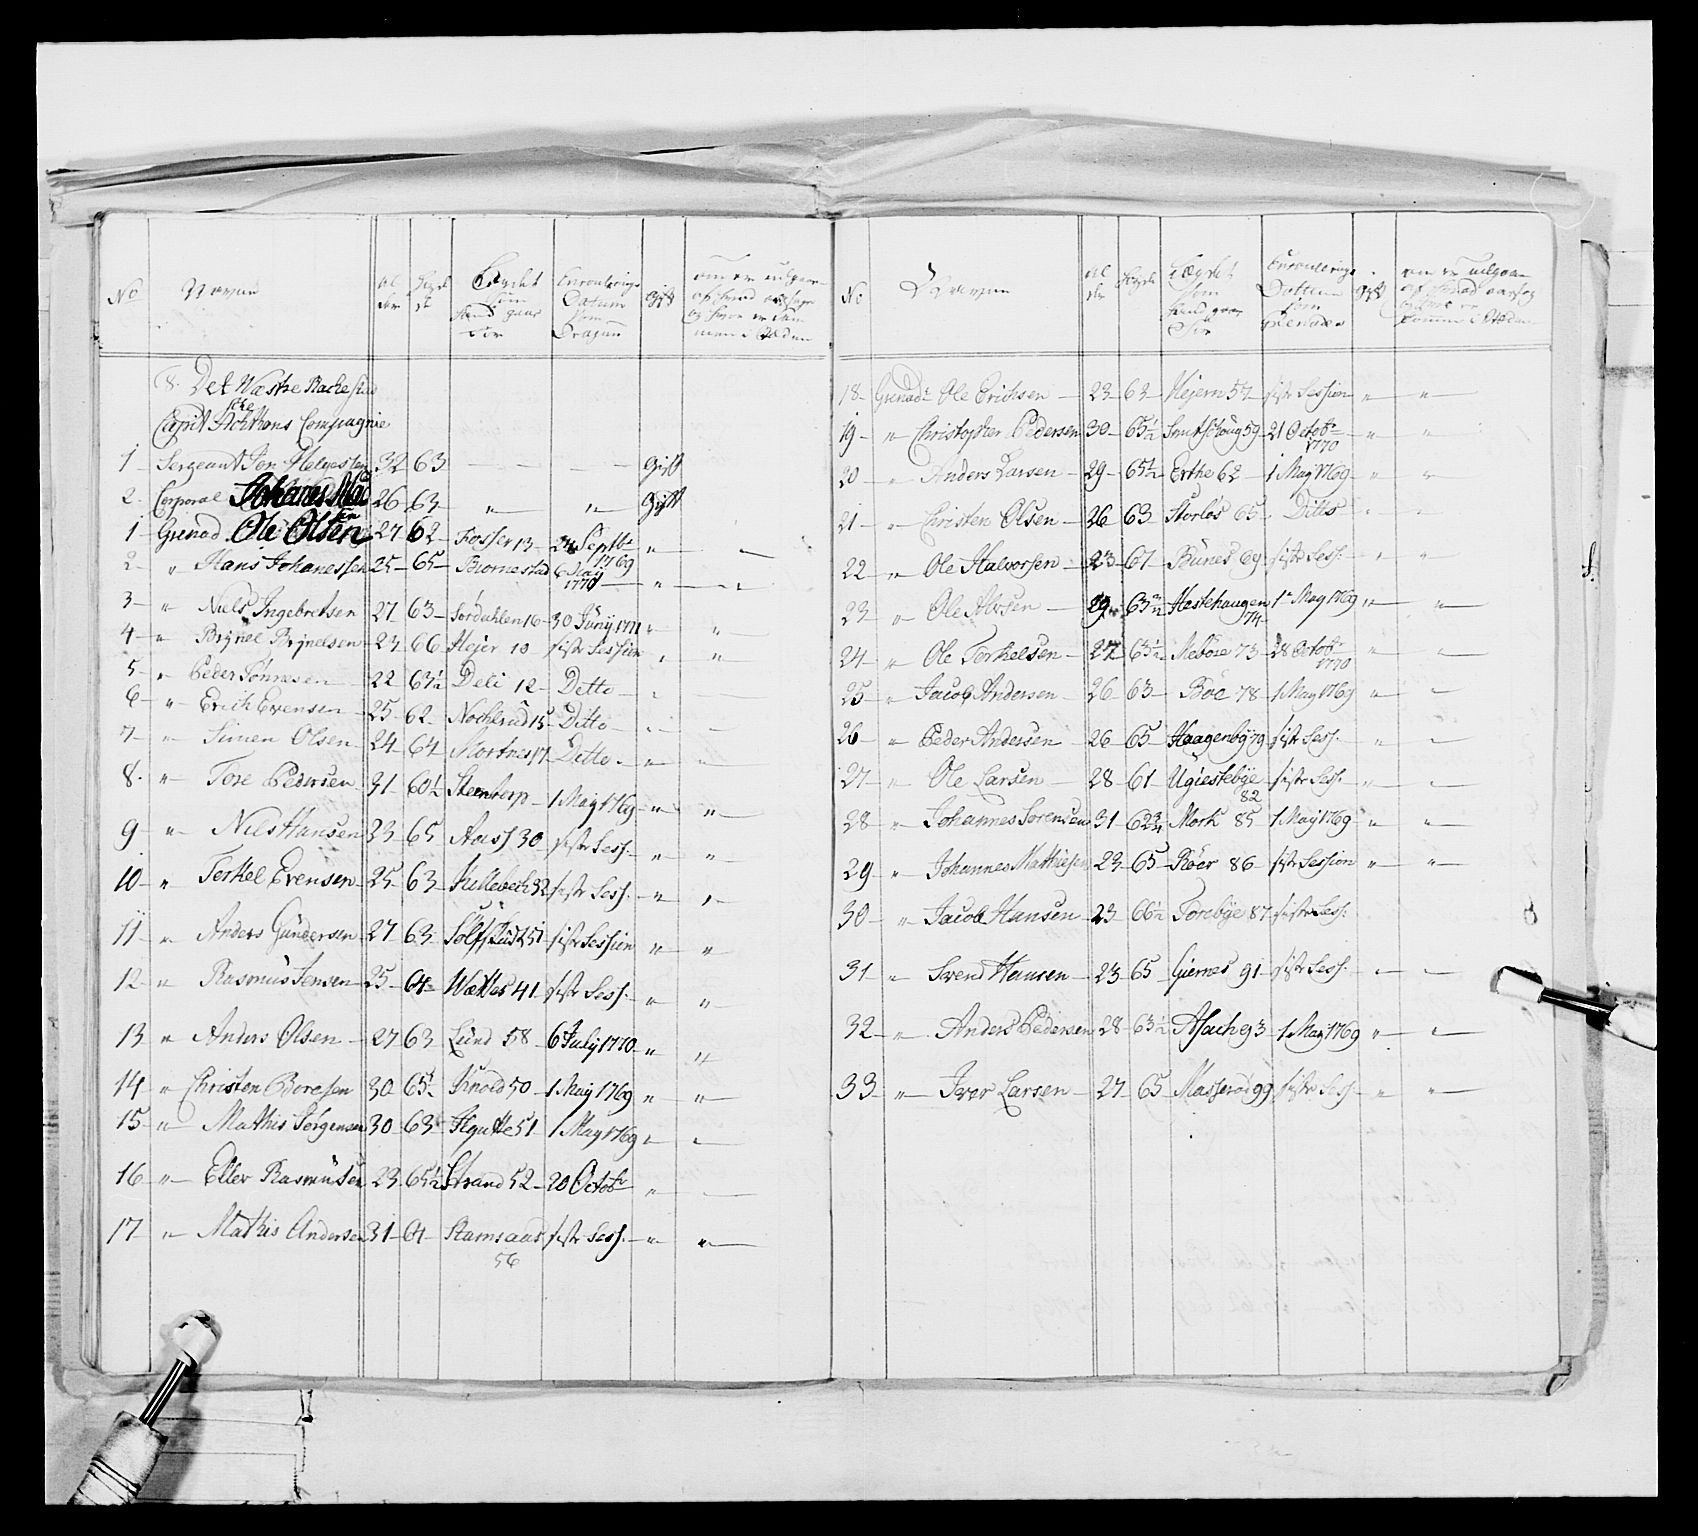 No Nafun Al der Høyde Lægdet som hand gaar for Enroulerings Datum som Dragun Gift
8. Det Wæstre Rackestad
ske
Capit Sichthons Compagnie
1 Sergeant Jon Helgesen 32 63 — — Gift
2. Corporal Johanes Mad sen 26 63 „ „ Gift
1 Grenad. Ole Olsen 27 62 Fosser 13 24 Septbr 1769 „ „
2 „ Hans Johanessen 25 65 Biornestad 6 July 1770 „ „
3 „ Niels Ingebretsen 27 63 Sørduhlen 16 30 Junÿ 1771 „ „
4 „ Brÿnel Brÿnelsen 23 66 Hejer 10 sistr Session „ „
5 „ Peder Tønnesen 22 63½ Deli 12 Ditto „ „
6 „ Erich Evensen 25 62 Nochlrud 15 Ditto „ „
7 „ Simen Olsen 24 64 Mortnes 17 Ditto „ „
8. „ Tore Pedersen 31 60½ Steentorp 1 Maÿ 1769 „ „
9 „ Nils Hansen 23 65 Aass 30 sistr Sess. „ „
10 „ Torkel Evensen 25 63 Kullebech 32 sistr Sess. „ „
11 „ Anders Gundersen 27 63 sistr Session „ „
12 „ Rasmus Jensen 25 64 Wættes 41 sistr Sess. „ „
13 „ Anders Olsen 27 63 Lund 58 6 Julÿ 1770 „ „
14 „ Christen Boresen 30 65½ Knold 50 1 Maÿ 1769 „ „
15 „ Mathis Jørgensen 30 63 Hgutte 51 1 Maÿ 1769 „ „
16 „ Eller Rasmusen 23 65½ Strand 52 20 Octobr „
17 „ Mathis Andersen 31 64 Stamsaas 56 sistr Sess. „ „
No Nafun Al der Høyde Lægdet som hand gaar for Enroulerings Dattum som Grenader Gift
18 Grenadr Ole Erichsen 23 62 Hejern 57 sistr Session „ „
19 „ Christopher Pedersen 30 65½ Smutschoug 59 21 Octobr 1770 „ „
20 „ Anders Larsen 29 65½ Erthe 62 1 Maÿ 1769 „ „
21 „ Christen Olsen 26 63 Storløs 65 Ditto „ „
22 „ Ole Halvorsen 23 67 Bunes 69 sistr Sess. „ „
23 „ Ole Alvsen 29 63¾ Hestehaugen 74 1 Maÿ 1769 „ „
24 „ Ole Torkelsen 27 63½ Mebøe 73 28 Octobr 1770 „ „
25 „ Jacob Andersen 26 63 Bøe 78 1 Maÿ 1769 „ „
26 „ Peder Andersen 26 65 Haagenbÿ 79 sistr Sess. „ „
27 „ Ole Larsen 28 61 Ugiestebÿe 82 sistr Sess. „ „
28 „ Johannes Sorensen 31 62¾ Mork 85 1 Maÿ 1769 „ „
29 „ Johannes Matthiesen 23 65 Røer 86 sistr Session „ „
30 „ Jacob Hansen 23 66½ Torebÿe 87 sistr Sess.
31 „ Svend Hansen 23 65 Giernes 91 sistr Sess. „ „
32 „ Anders Pedersen 28 63½ Asach 93 1 Maÿ 1769 „ „
33 „ Iver Larsen 27 65 Masserød 99 sistr Sess. „ „